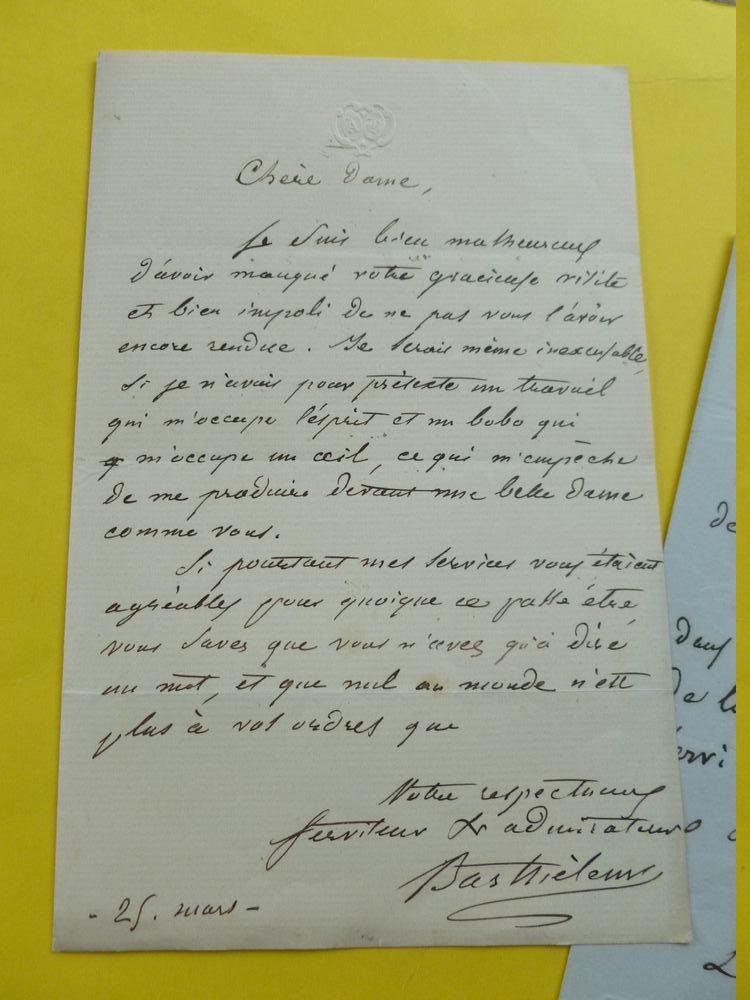 Chère Dame,
Je suis bien malheureux
d'avoir manqué votre gracieuse visite
et bien impoli de ne pas vous l'avoir
encore rendue. Je serais même inexcusable,
si je n'avais pour prétexte un travail
qui m'occupe l'ésprit et un bobo qui
m'occupe un œil, ce qui m'empêche
de me produire devant une belle dame
comme vous.
Si pourtant mes services vous étaient
agréables pour quoique ce passe être,
vous savez que vous n'avez qu'à dire
un mot, et que nul au monde n'est
plus à vos ordres que
Votre respectueux
serviteur & admirateur
- 25. mars -
de
de